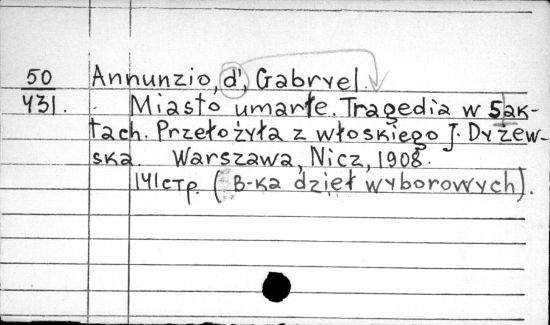 50 Annunzio, d', Gabryel.
431. Miasto umarłe. Tragedia w 5 ak-
tach. Przełożyła z włoskiego J. Dyżew-
ska. Warszawa, Nicz, 1908.
141 стр. (B-ka dzieł wyborowych).